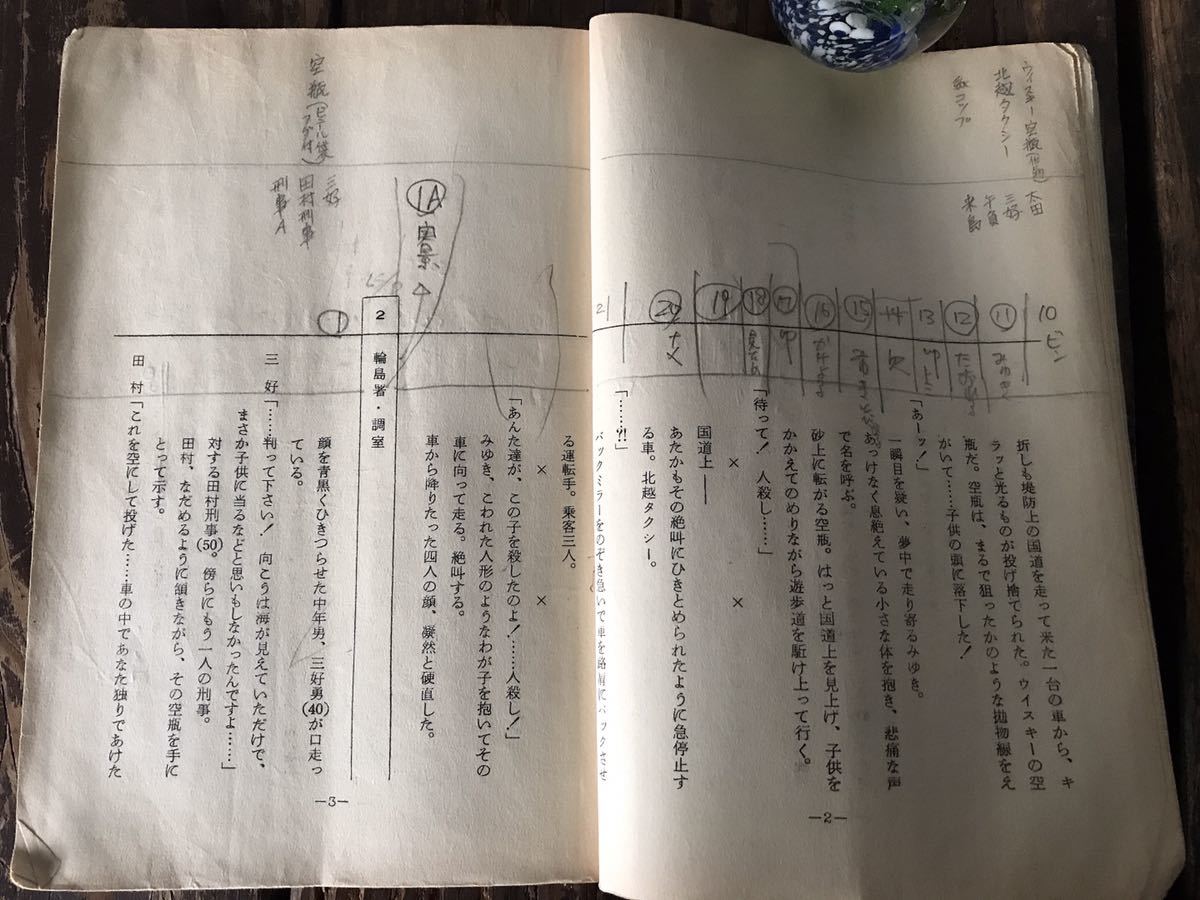 ウイスキー空瓶
北越タクシー
紙コップ
太田
三好
来島
10 ビン
⑪ みゆき
⑫
13
14 欠
⑮
⑯
⑰
⑱
⑲
⑳
21
折しも堤防上の国道を走って来た一台の車から、キ
ラッと光るものが投げ捨てられた。ウイスキーの空
瓶だ。空瓶は、まるで狙ったかのような拋物線をえ
がいて……子供の頭に落下した！
「あーッ！」
一瞬目を疑い、夢中で走り寄るみゆき。
あっけなく息絶えている小さな体を抱き、悲痛な声
で名を呼ぶ。
砂上に転がる空瓶。はっと国道上を見上げ、子供を
かかえてのめりながら遊歩道を駈け上って行く。
「待って！　人殺し……」
×　×
国道上――
あたかもその絶叫にひきとめられたように急停止す
る車。北越タクシー。
「……⁈」
バックミラーをのぞき急いで車を路肩にバックさせ
―2―
る運転手。乗客三人。
×　×
「あんた達が、この子を殺したのよ！……人殺し！」
みゆき、こわれた人形のようなわが子を抱いてその
車に向って走る。絶叫する。
車から降りたった四人の顔、凝然と硬直した。
①A 実景
空瓶
三好
田村刑事
刑事A
2　輪島署・調室
①
顔を青黒くひきつらせた中年男、三好勇(40)が口走っ
ている。
三　好「……判って下さい！　向こうは海が見えていただけで、
まさか子供に当るなどと思いもしなかったんですよ……」
対する田村刑事(50)。傍らにもう一人の刑事。
田村、なだめるように頷きながら、その空瓶を手に
とって示す。
田　村「これを空にして投げた……車の中であなた独りであけた
―3―